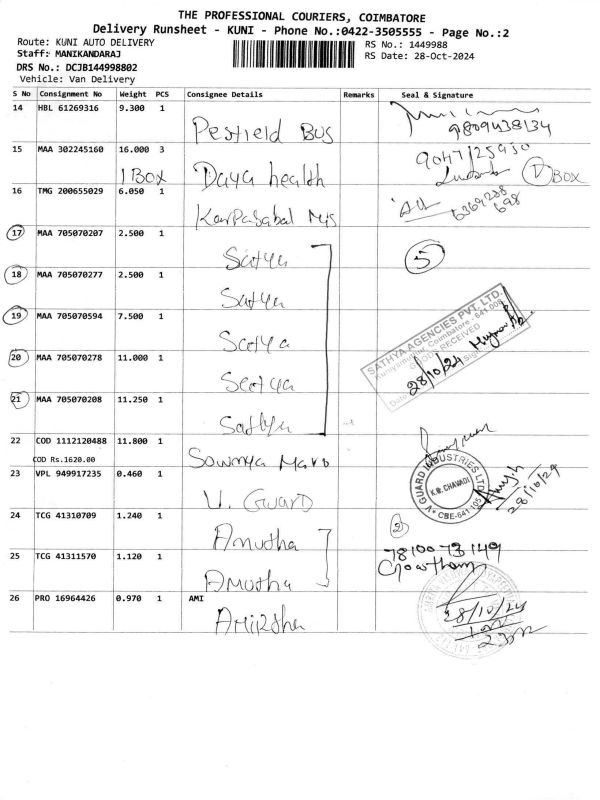 THE PROFESSIONAL COURIERS, COIMBATORE
Delivery Runsheet - KUNI - Phone No.:0422-3505555 - Page No.:2
Route: KUNI AUTO DELIVERY
RS No.: 1449988
Staff: MANIKANDARAJ
RS Date: 28-Oct-2024
DRS No.: DCJB144998802
Vehicle: Van Delivery
S No Consignment No Weight PCS Consignee Details Remarks Seal & Signature
14 HBL 61269316 9.300 1
Pestield BUS
9809438134
15 MAA 302245160 16.000 3
1 BOX Daya health
1 BOX
16 TMG 200655029 6.050 1
17 MAA 705070207 2.500 1
Satya
5
18 MAA 705070277 2.500 1
Satya
19 MAA 705070594 7.500 1
Satya
SATHYA AGENCIES PVT. LTD.
Coimbatore - 641 008
GOODS RECEIVED
Date 28/10/24 Sign
20 MAA 705070278 11.000 1
Satya
21 MAA 705070208 11.250 1
Sathya
22 COD 1112120488 11.800 1
COD Rs.1620.00
Sowmya
23 VPL 949917235 0.460 1
V. Guard
V GUARD INDUSTRIES LTD.
K.G. CHAVADI
CBE-641 105
28/10/24
24 TCG 41310709 1.240 1
Anutha
2
25 TCG 41311570 1.120 1
Anutha
7810073149
Gowtham
26 PRO 16964426 0.970 1 AMI
Amirtha
28/10/24